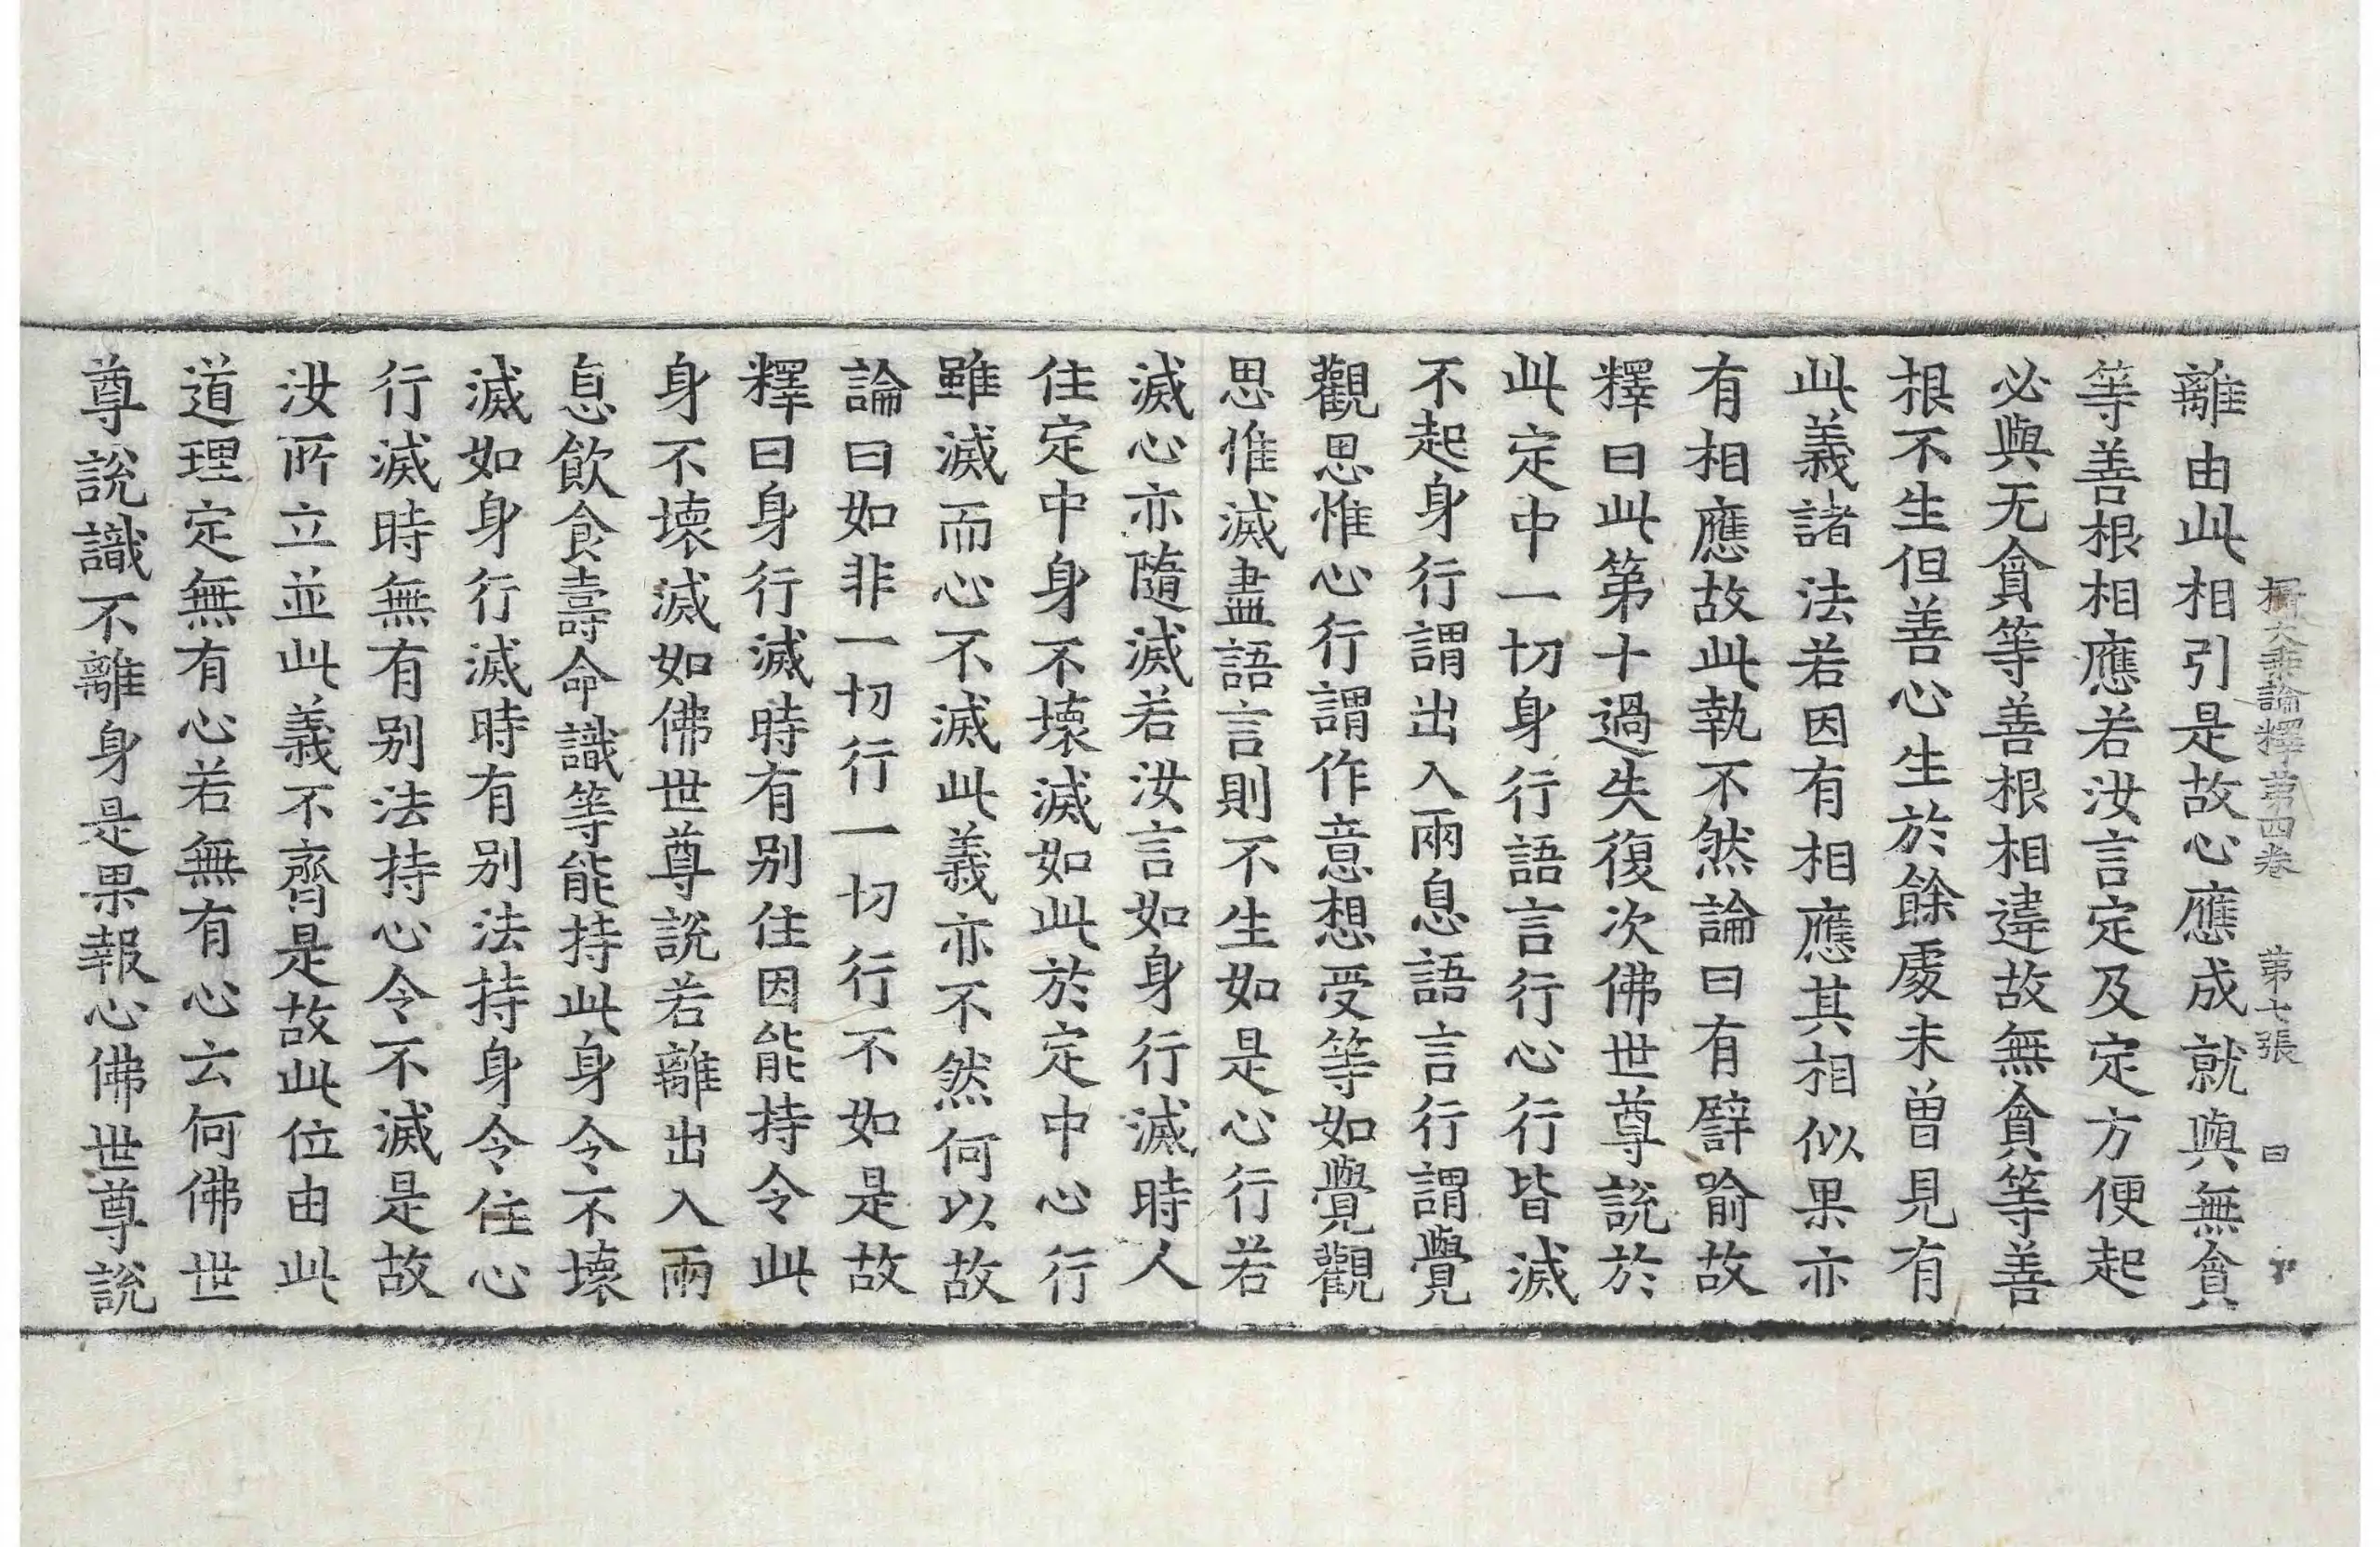 攝大乗論釋第四卷 第七張 曰
離由此相引是故心應成就與無貪
等善根相應若汝言定及定方便起
必與无貪等善根相違故無貪等善
根不生但善心生於餘處未曾見有
此義諸法若因有相應其相似果亦
有相應故此執不然論曰有譬喻故
釋曰此第十過失復次佛世尊說於
此定中一切身行語言行心行皆滅
不起身行謂出入兩息語言行謂覺
觀思惟心行謂作意想受等如覺觀
思惟滅盡語言則不生如是心行若
滅心亦隨滅若汝言如身行滅時人
住定中身不壞滅如此於定中心行
雖滅而心不滅此義亦不然何以故
論曰如非一切行一切行不如是故
釋曰身行滅時有別住因能持令此
身不壞滅如佛世尊說若離出入兩
息飲食壽命識等能持此身令不壞
滅如身行滅時有別法持身令住心
行滅時無有別法持心令不滅是故
汝所立並此義不齊是故此位由此
道理定無有心若無有心云何佛世
尊說識不離身是果報心佛世尊說